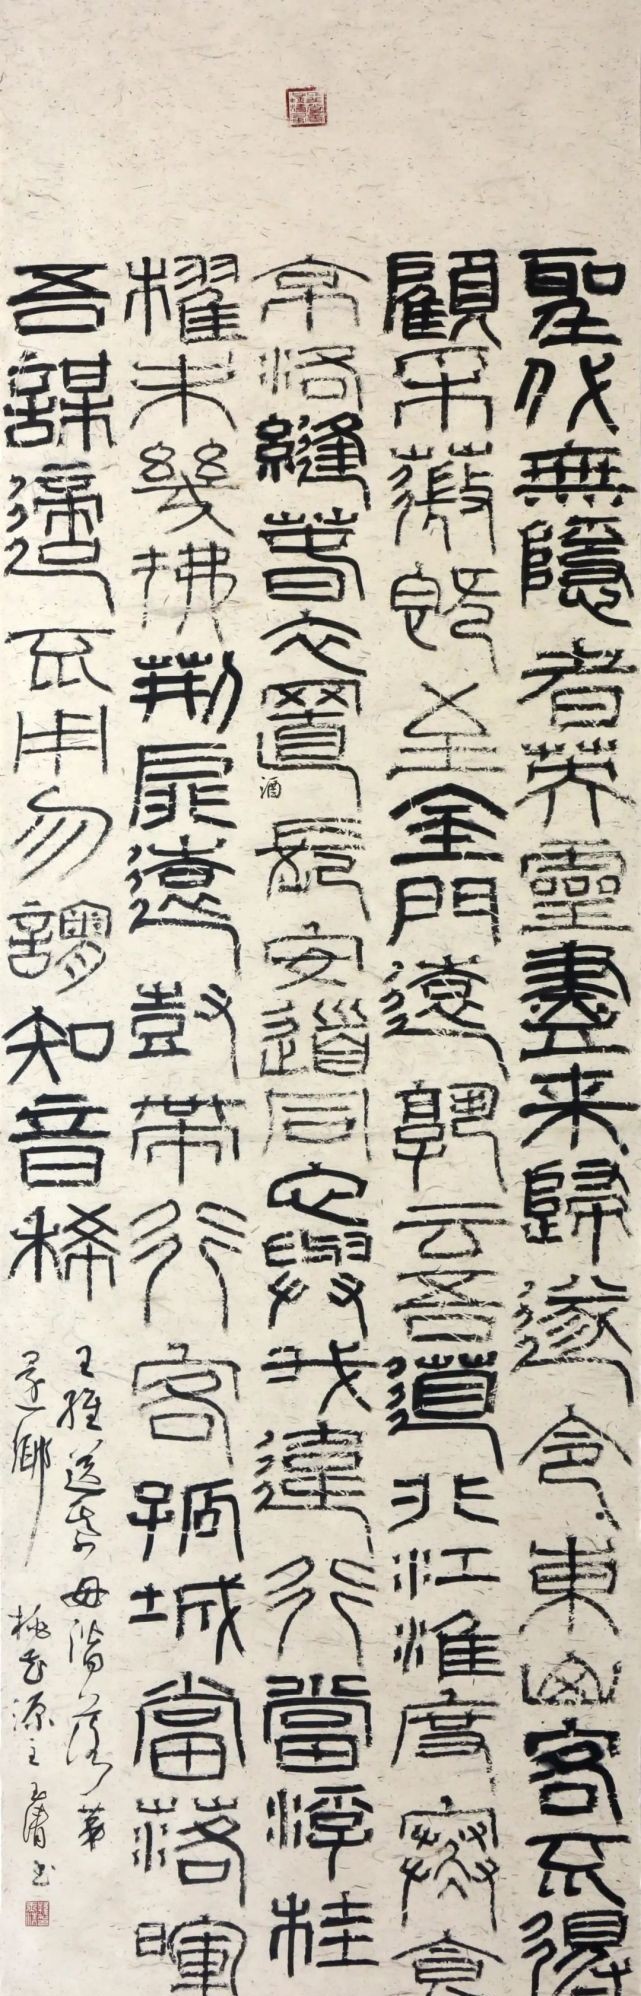 聖代無隱者英靈盡來歸遂令東山客不得
顧采薇既至金門遠孰云吾道非江淮度寒食
京洛縫春衣置酒長安道同心與我違行當浮桂
櫂未幾拂荊扉遠樹帶行客孤城當落暉
吾謀適不用勿謂知音稀
王維送綦毋潛落第
還鄉 桃花源主 书